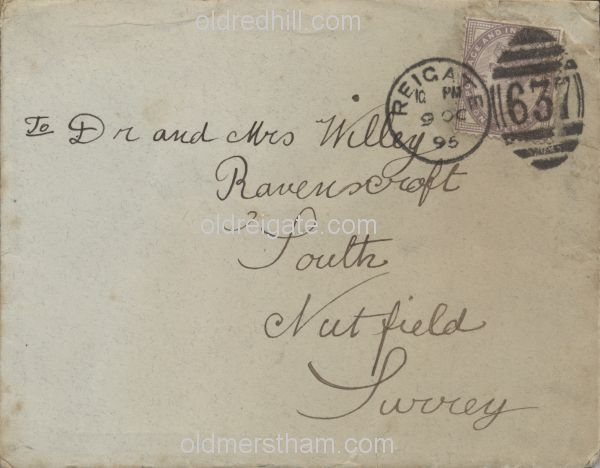 oldredhill.com
REIGATE
10 PM
9 OC
95
637
To Dr and Mrs Willey
Ravenscroft
oldreigate.com
South
Nutfield
Surrey
oldmerstham.com